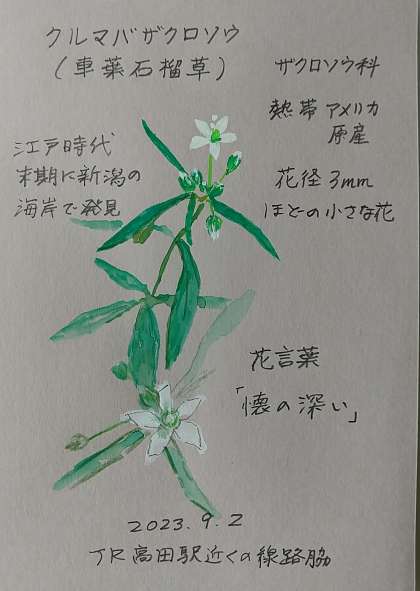 クルマバザクロソウ
(車葉石榴草)
ザクロソウ科
熱帯アメリカ
原産
江戸時代
末期に新潟の
海岸で発見
花径 3mm
ほどの小さな花
花言葉
「懐の深い」
2023.9.2
JR高田駅近くの線路脇